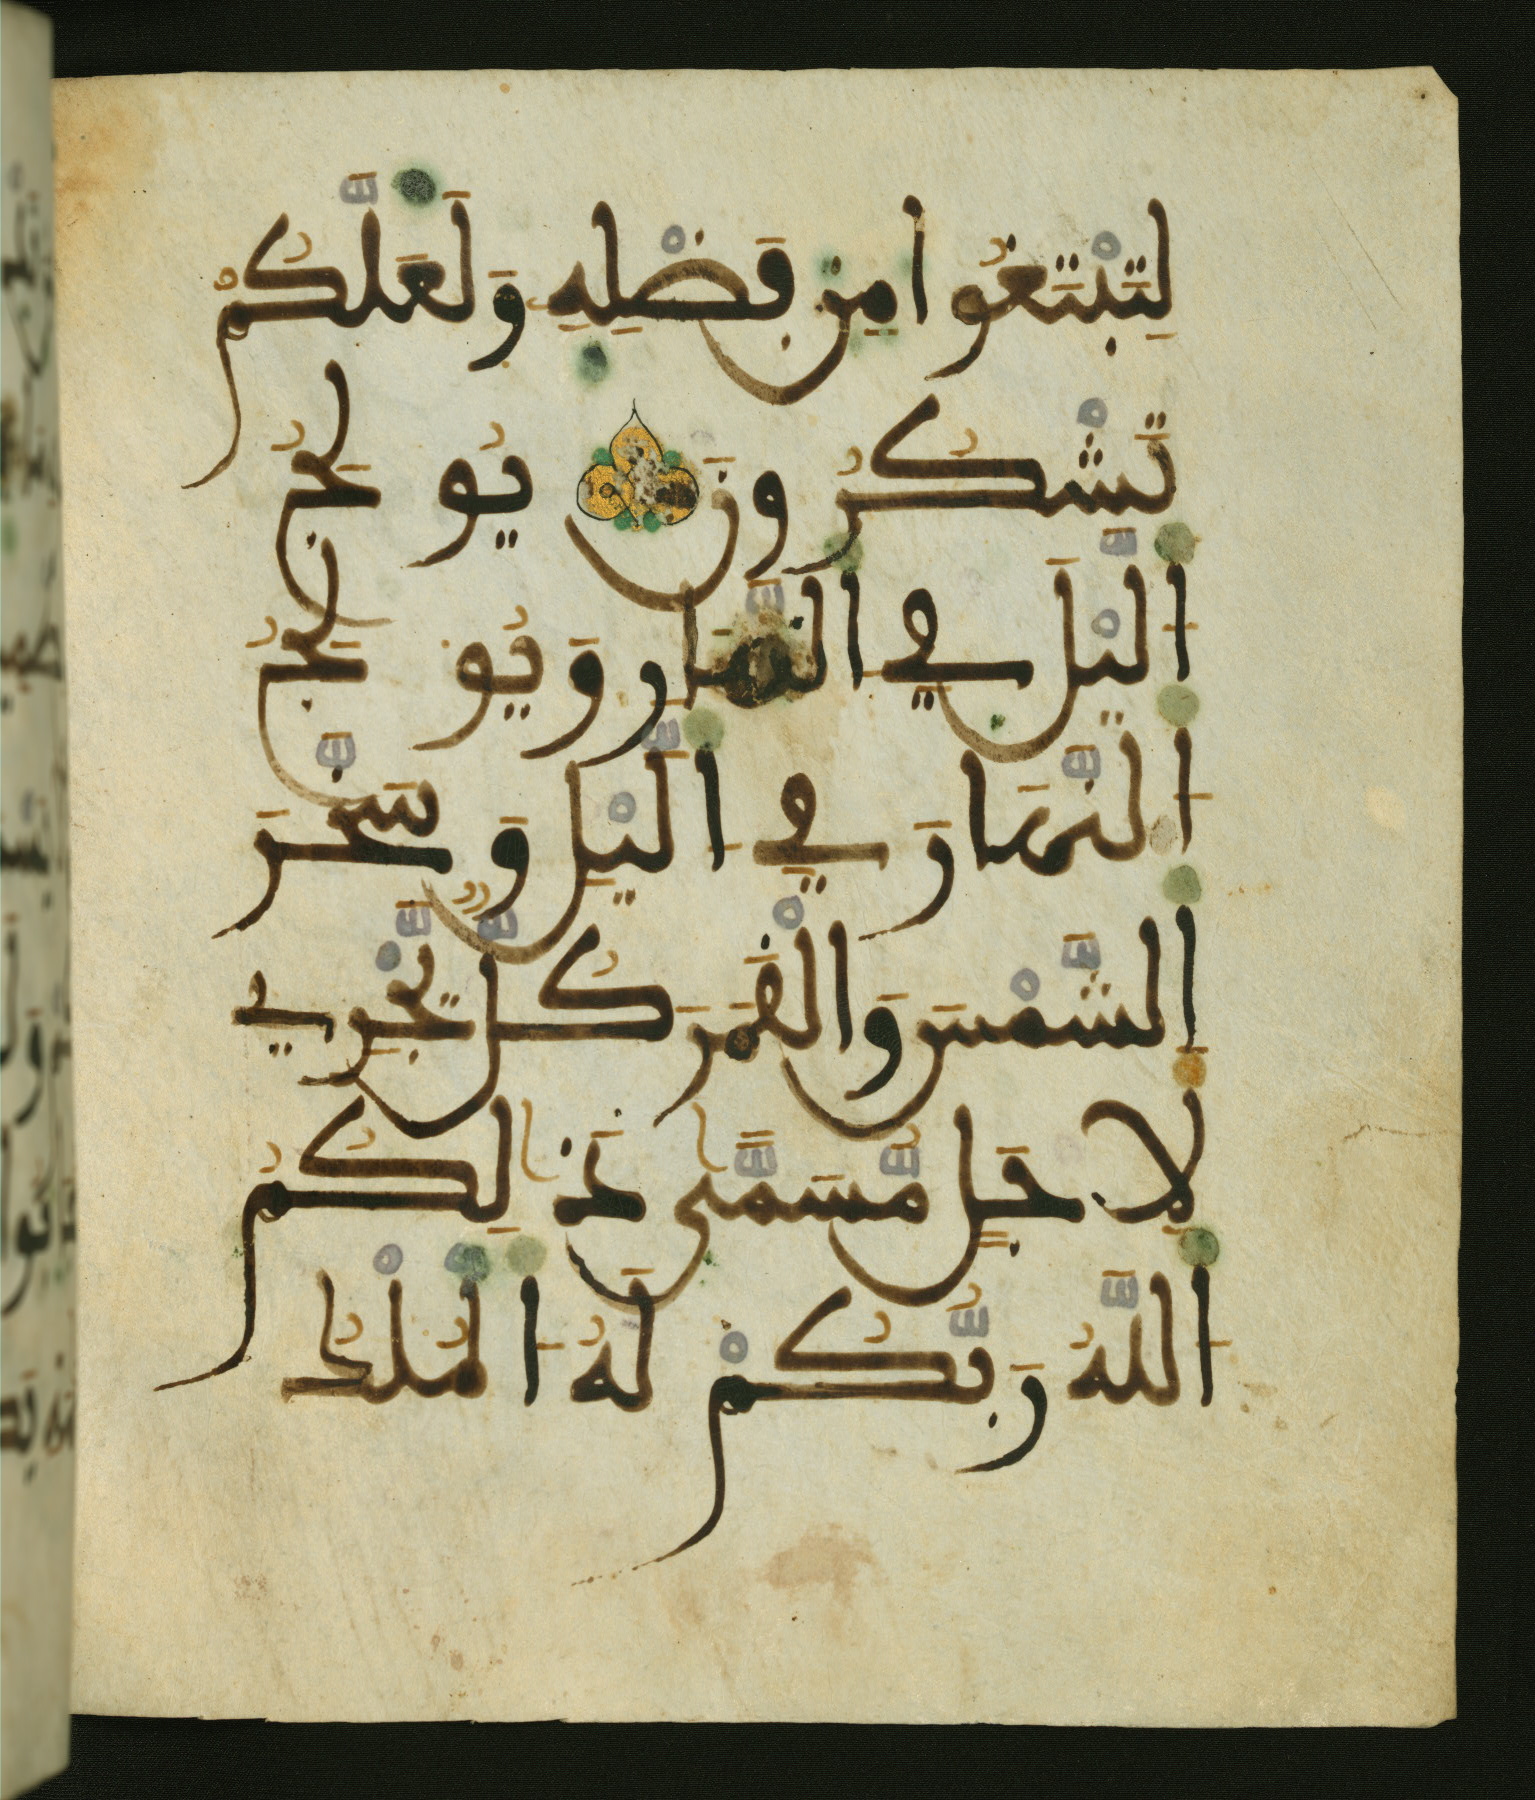 لِتَبْتَغُوا مِن فَضْلِهِ وَلَعَلَّكُمُ
تَشْكُرُونَ يُولِجُ
الَّيْلَ فِي النَّهَارِ وَيُولِجُ
النَّهَارَ فِي الَّيْلِ وَسَخَّرَ
الشَّمْسَ وَالْقَمَرَ كُلٌّ يَّجْرِي
لِأَجَلٍ مُّسَمًّى ذَٰلِكُمُ
اللَّهُ رَبُّكُمْ لَهُ الْمُلْكُ